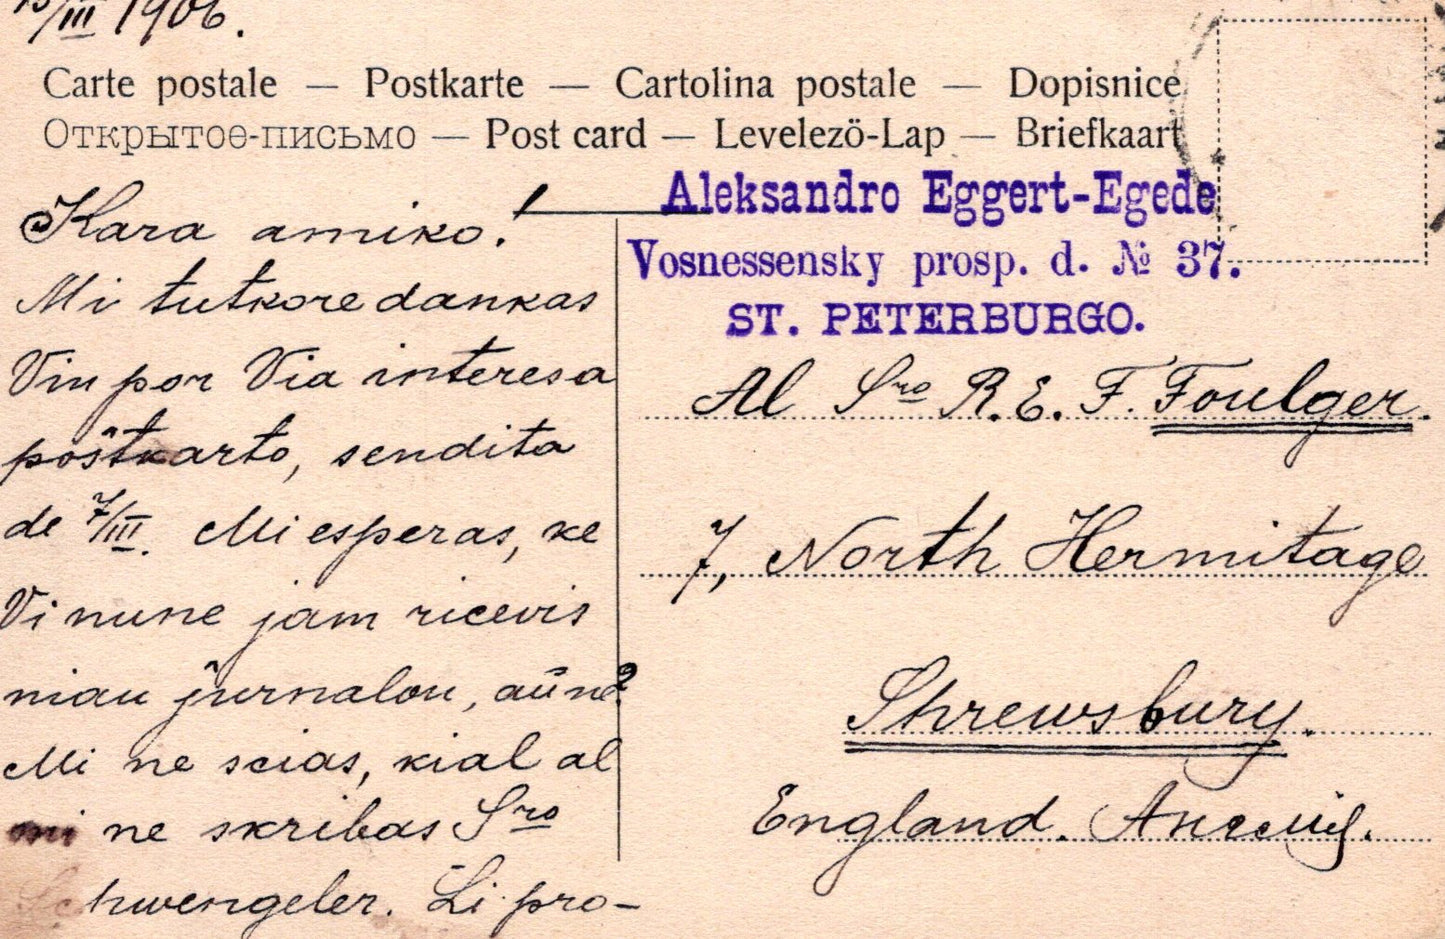 15/III 1906.
Carte postale — Postkarte — Cartolina postale — Dopisnice
Открытое-письмо — Post card — Levelezö-Lap — Briefkaart
Aleksandro Eggert-Egede
Vosnessensky prosp. d. № 37.
ST. PETERBURGO.
Kara amiko!
Mi tutkore dankas
Vin por Via interesa
poŝtkarto, sendita
de 7/III. Mi esperas, ke
Vi nune jam ricevis
nian ĵurnalon, aŭ ne?
Mi ne scias, kial al
mi ne skribas Sro
Schwengeler. Li pro-
Al Sro R. E. F. Foulger.
7, North Hermitage
Shrewsbury.
England. Англія.